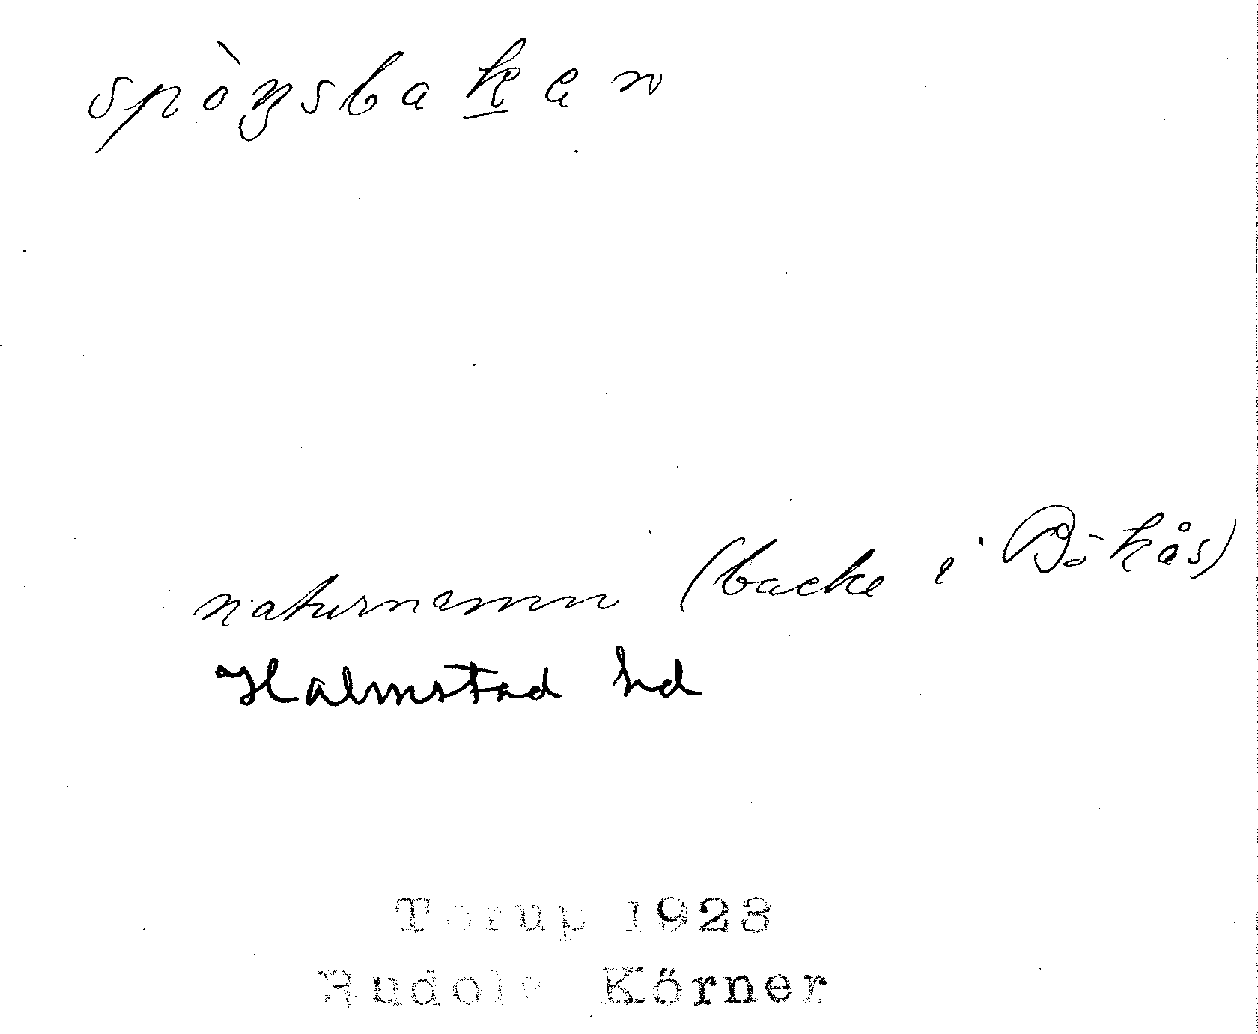 spòŋsbaḵan
naturnamn (backe i Bökås)
Halmstad hd
Torup 1923
Rudolf Körner